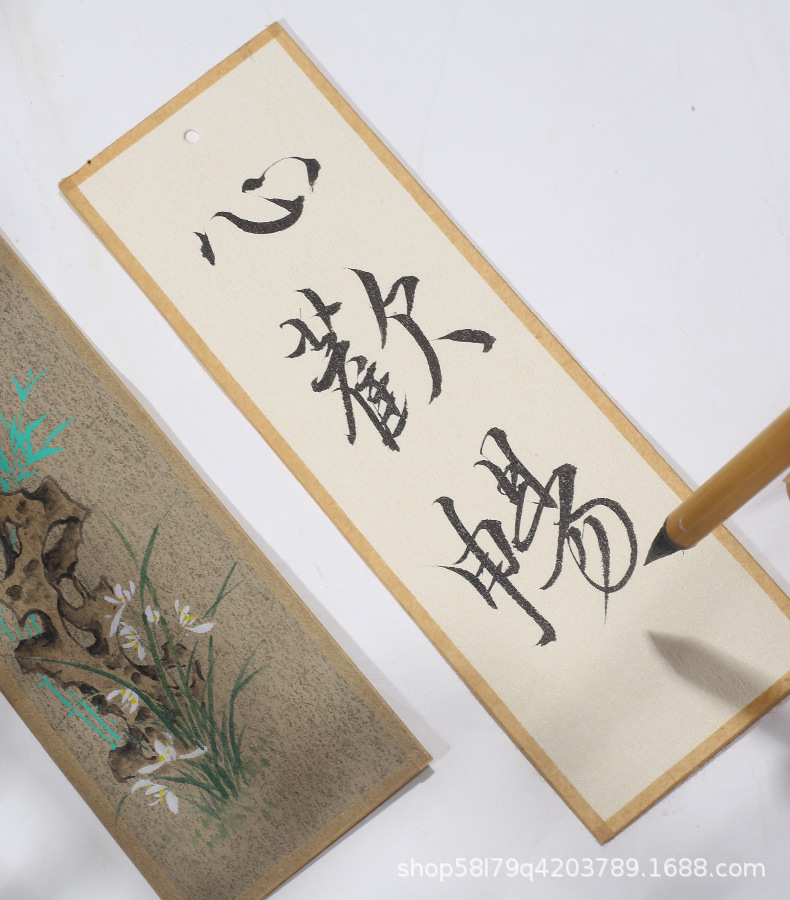 心歡暢
shop58l79q4203789.1688.com